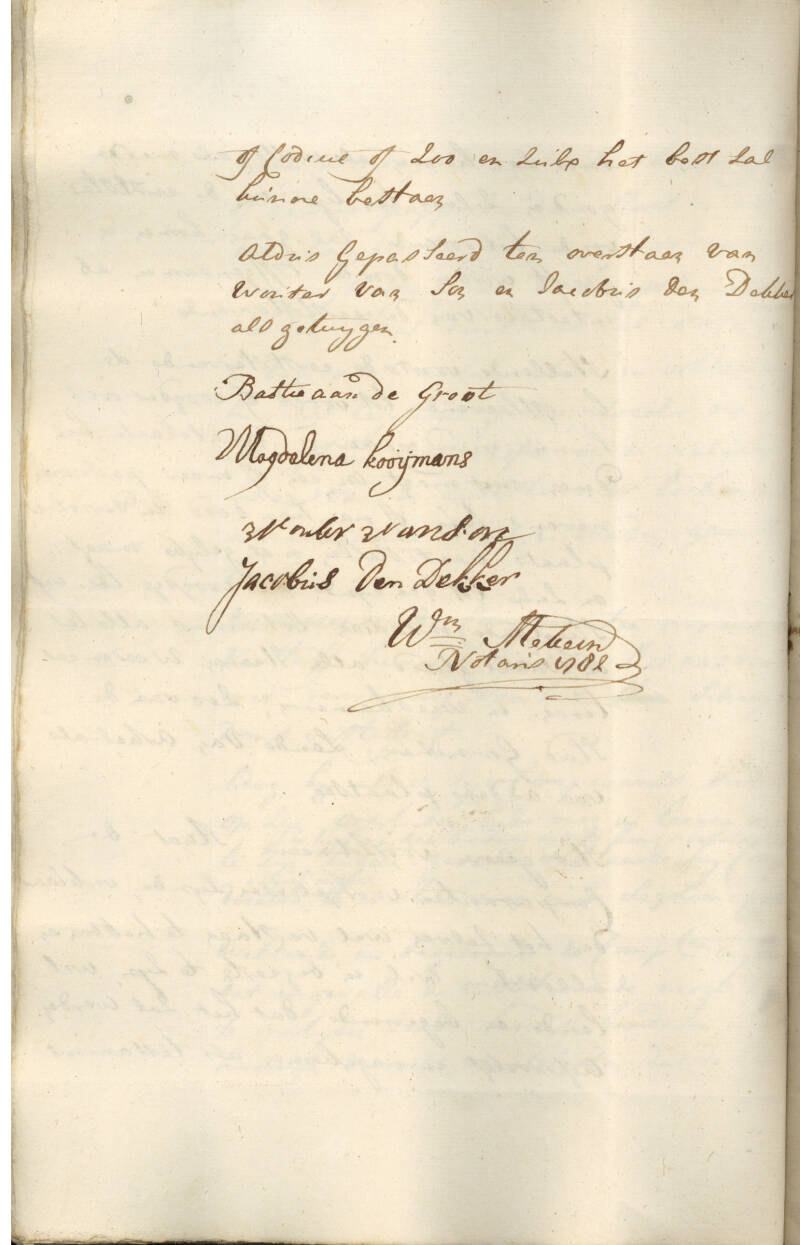 of Codicile of zoo en zulx het best zal
kunne bestaen
Aldus Gepasseerd ten overstaen van
Wouter van Son en Jacobus den Dekker
als getuygen.
Bastiaan de Groot
Magdalena kooijmans
Wouter van son
Jacobus Den Dekker
Wm
Notaris 1782